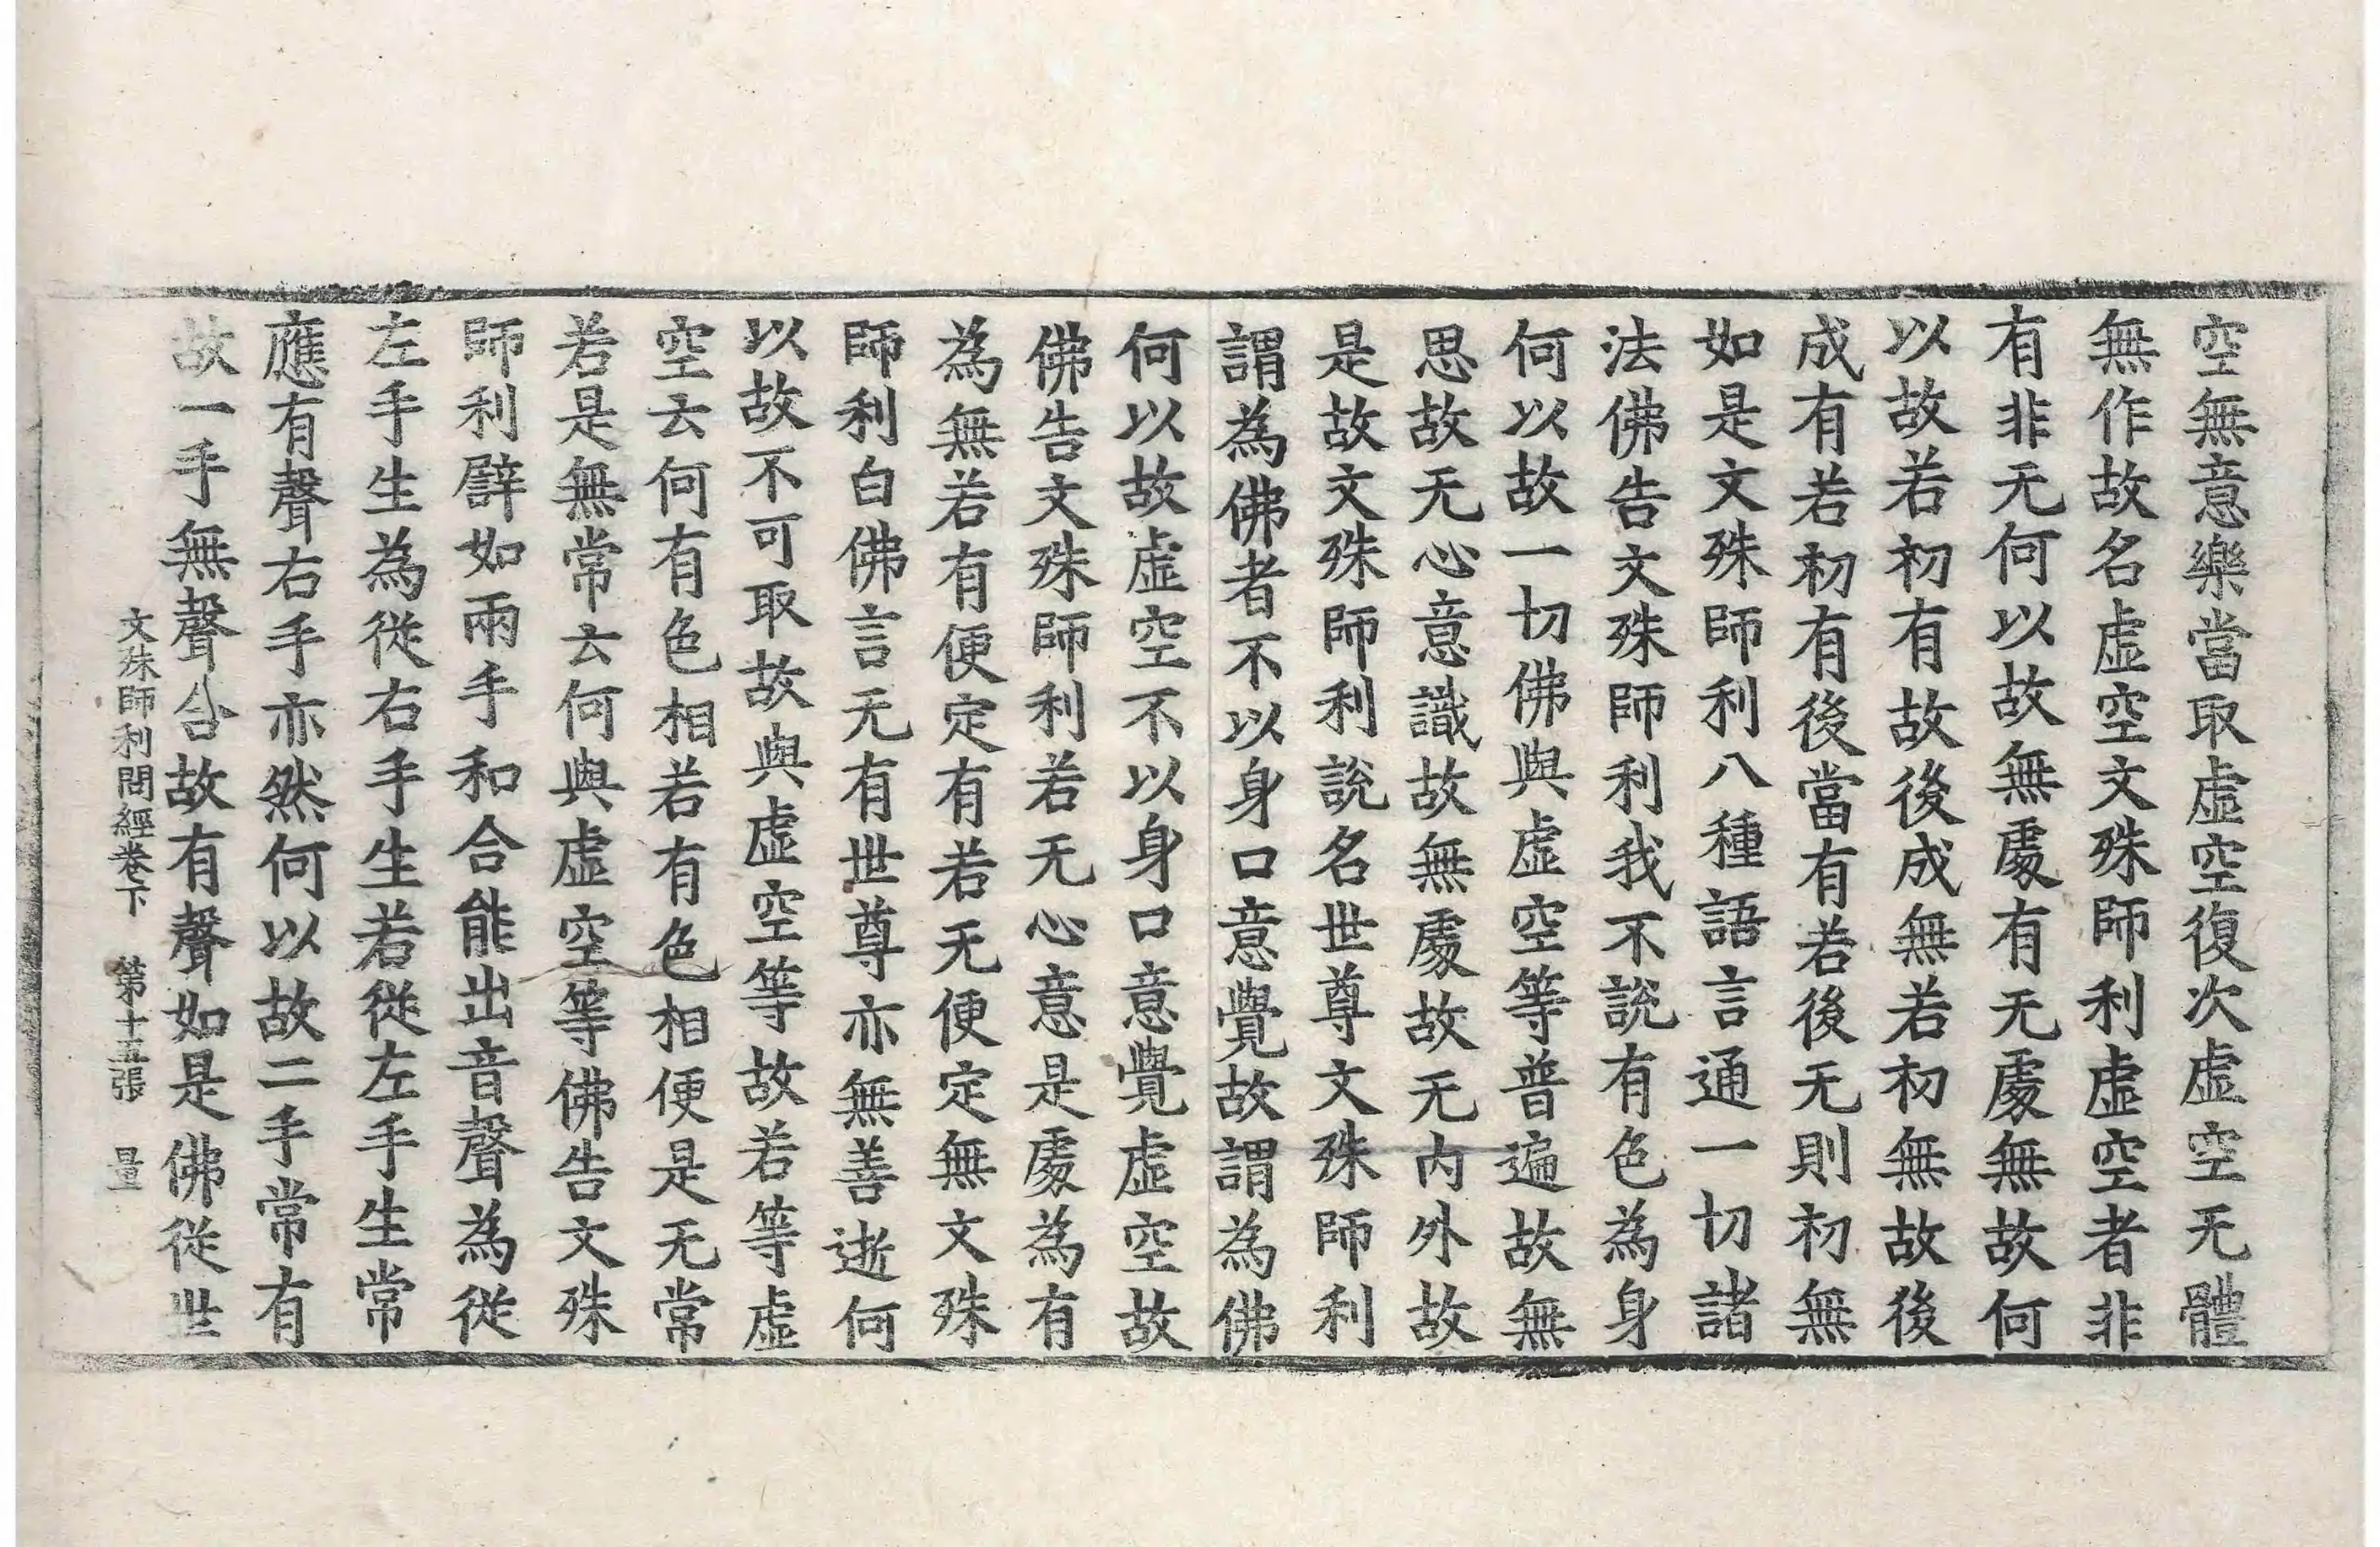 空無意樂當取虛空復次虛空无體
無作故名虛空文殊師利虛空者非
有非无何以故無處有无處無故何
以故若初有故後成無若初無故後
成有若初有後當有若後无則初無
如是文殊師利八種語言通一切諸
法佛告文殊師利我不說有色為身
何以故一切佛與虛空等普遍故無
思故无心意識故無處故无内外故
是故文殊師利說名世尊文殊師利
謂為佛者不以身口意覺故謂為佛
何以故虛空不以身口意覺虛空故
佛告文殊師利若无心意是處為有
為無若有便定有若无便定無文殊
師利白佛言无有世尊亦無善逝何
以故不可取故與虛空等故若等虛
空云何有色相若有色相便是无常
若是無常云何與虛空等佛告文殊
師利譬如兩手和合能出音聲為從
左手生為從右手生若從左手生常
應有聲右手亦然何以故二手常有
故一手無聲合故有聲如是佛從世
文殊師利問經卷下 第十五張 量